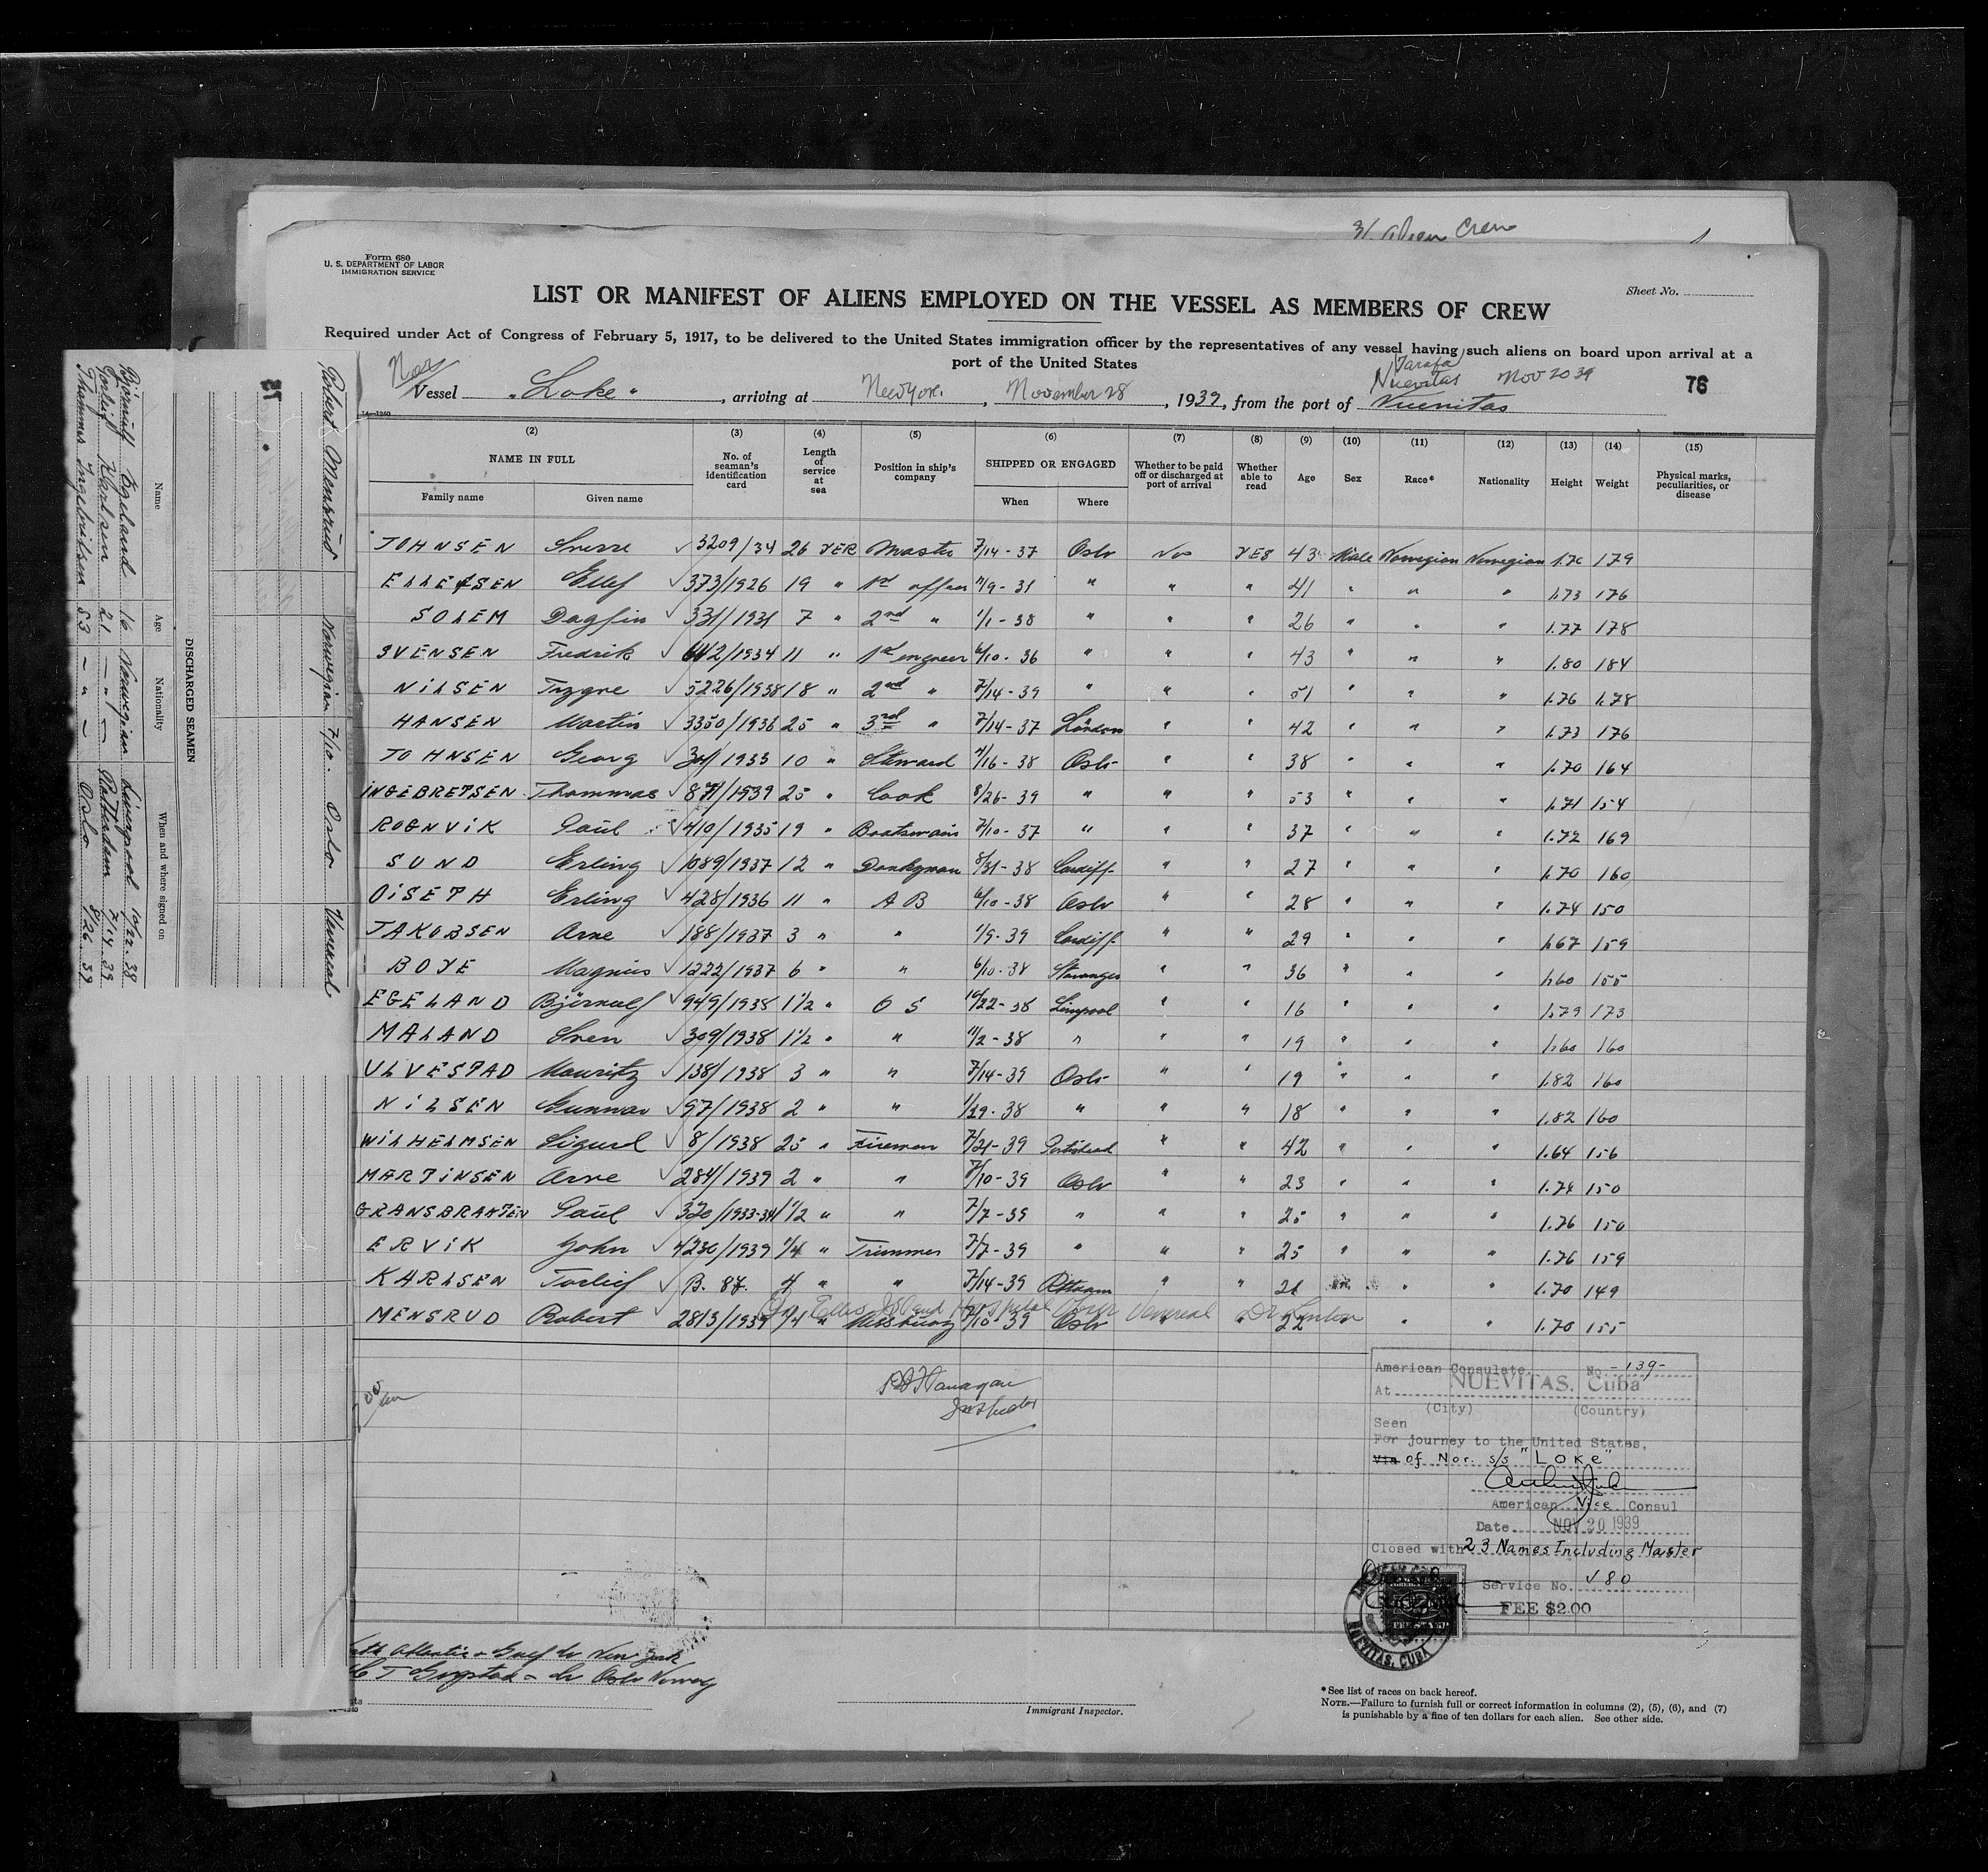 31 Alien Crew
Form 680
U. S. DEPARTMENT OF LABOR
IMMIGRATION SERVICE
Sheet No.
LIST OR MANIFEST OF ALIENS EMPLOYED ON THE VESSEL AS MEMBERS OF CREW
Required under Act of Congress of February 5, 1917, to be delivered to the United States immigration officer by the representatives of any vessel having such aliens on board upon arrival at a
port of the United States
Nor
Tarafa
Nuevitas Nov 20 39
76
Vessel "Loke", arriving at New York, November 28, 1939, from the port of Nuevitas
14—1240
(2) (3) (4) (5) (6) (7) (8) (9) (10) (11) (12) (13) (14) (15)
NAME IN FULL No. of seaman's identification card Length of service at sea Position in ship's company SHIPPED OR ENGAGED Whether to be paid off or discharged at port of arrival Whether able to read Age Sex Race* Nationality Height Weight Physical marks, peculiarities, or disease
Family name Given name When Where
JOHNSEN Sverre √ 3209/34 26 YER Master 7/14-37 Oslo No YES 43 Male Norwegian Norwegian 1.76 179
ELLEFSEN Ellef √ 373/1926 19 " 1st officer 11/9-31 " " " 41 " " " 1.73 176
SOLEM Dagfin √ 331/1931 7 " 2nd " 1/1-38 " " " 26 " " " 1.77 178
SVENSEN Fredrik √ 642/1934 11 " 1st engineer 6/10-36 " " " 43 " " " 1.80 184
NILSEN Trygve √ 5226/1938 18 " 2nd " 7/14-39 " " " 51 " " " 1.76 1.78
HANSEN Martin √ 3350/1936 25 " 3rd " 7/14-37 London " " 42 " " " 1.73 176
JOHNSEN Georg √ 1933 10 " Steward 4/16-38 Oslo " " 38 " " " 1.70 164
INGEBRETSEN Thommas √ 871/1939 25 " Cook 8/26-39 " " " 53 " " " 1.71 154
ROGNVIK Paul √ 410/1935 19 " Boatswain 7/10-37 " " " 37 " " " 1.72 169
SUND Erling √ 1089/1937 12 " Donkyman 8/31-38 Cardiff " " 27 " " " 1.70 160
OISETH Erling √ 428/1936 11 " A B 6/10-38 Oslo " " 28 " " " 1.74 150
JAKOBSEN Arne √ 188/1937 3 " " 1/9-39 Cardiff " " 29 " " " 1.67 159
BOYE Magnus √ 1222/1937 6 " " 6/10-38 Stavanger " " 36 " " " 1.60 155
EGELAND Björnulf √ 949/1938 1½ " O S 10/22-38 Liverpool " " 16 " " " 1.79 173
MALAND Sven √ 309/1938 1½ " " 11/2-38 " " " 19 " " " 1.60 160
ULVESTAD Mauritz √ 138/1938 3 " " 7/14-39 Oslo " " 19 " " " 1.82 160
NILSEN Gunnar √ 97/1938 2 " " 1/29-38 " " " 18 " " " 1.82 160
WILHELMSEN Sigurd √ 8/1938 25 " Fireman 7/21-39 Portishead " " 42 " " " 1.64 156
MARTINSEN Arne √ 284/1939 2 " " 7/10-39 Oslo " " 23 " " " 1.74 150
GRANSBRAATEN Paul √ 320/1933-34 1½ " " 7/7-39 " " " 25 " " " 1.76 150
ERVIK John √ 4230/1939 1/4 " Trimmer 7/7-39 " " " 25 " " " 1.76 159
KARLSEN Torleif √ B. 87. 4 " " 7/14-39 Rttdam " " 21 " " " 1.70 149
Ellis Island Hospital Venereal Dr
MENSRUD Robert √ 2813/1939 1/4 " Messboy 7/10-39 Oslo " " 22 " " 1.70 155
Flanagan
Inspector
American Consulate, No. -139-
At NUEVITAS, Cuba
(City) (Country)
Seen
For journey to the United States,
via of Nor. s/s "LOKE"
American Vice Consul
Date NOV 20 1939
Closed with 23 Names Including Master
Service No. √80
FEE $2.00
NUEVITAS, CUBA
Atlantic & Gulf Ln New York
Oslo Norway
Immigrant Inspector.
*See list of races on back hereof.
NOTE.—Failure to furnish full or correct information in columns (2), (5), (6), and (7)
is punishable by a fine of ten dollars for each alien. See other side.
DISCHARGED SEAMEN
Name Age Nationality When and where signed on
Björnulf Egeland 16 Norwegian Liverpool 10/22.38
Torleif Karlsen 21 — " — Rotterdam 7/14.39
Thammes Ingebrittsen 53 — " — Oslo 8/26 39
Robert Mensrud Norwegian 7/10. Oslo Venereal